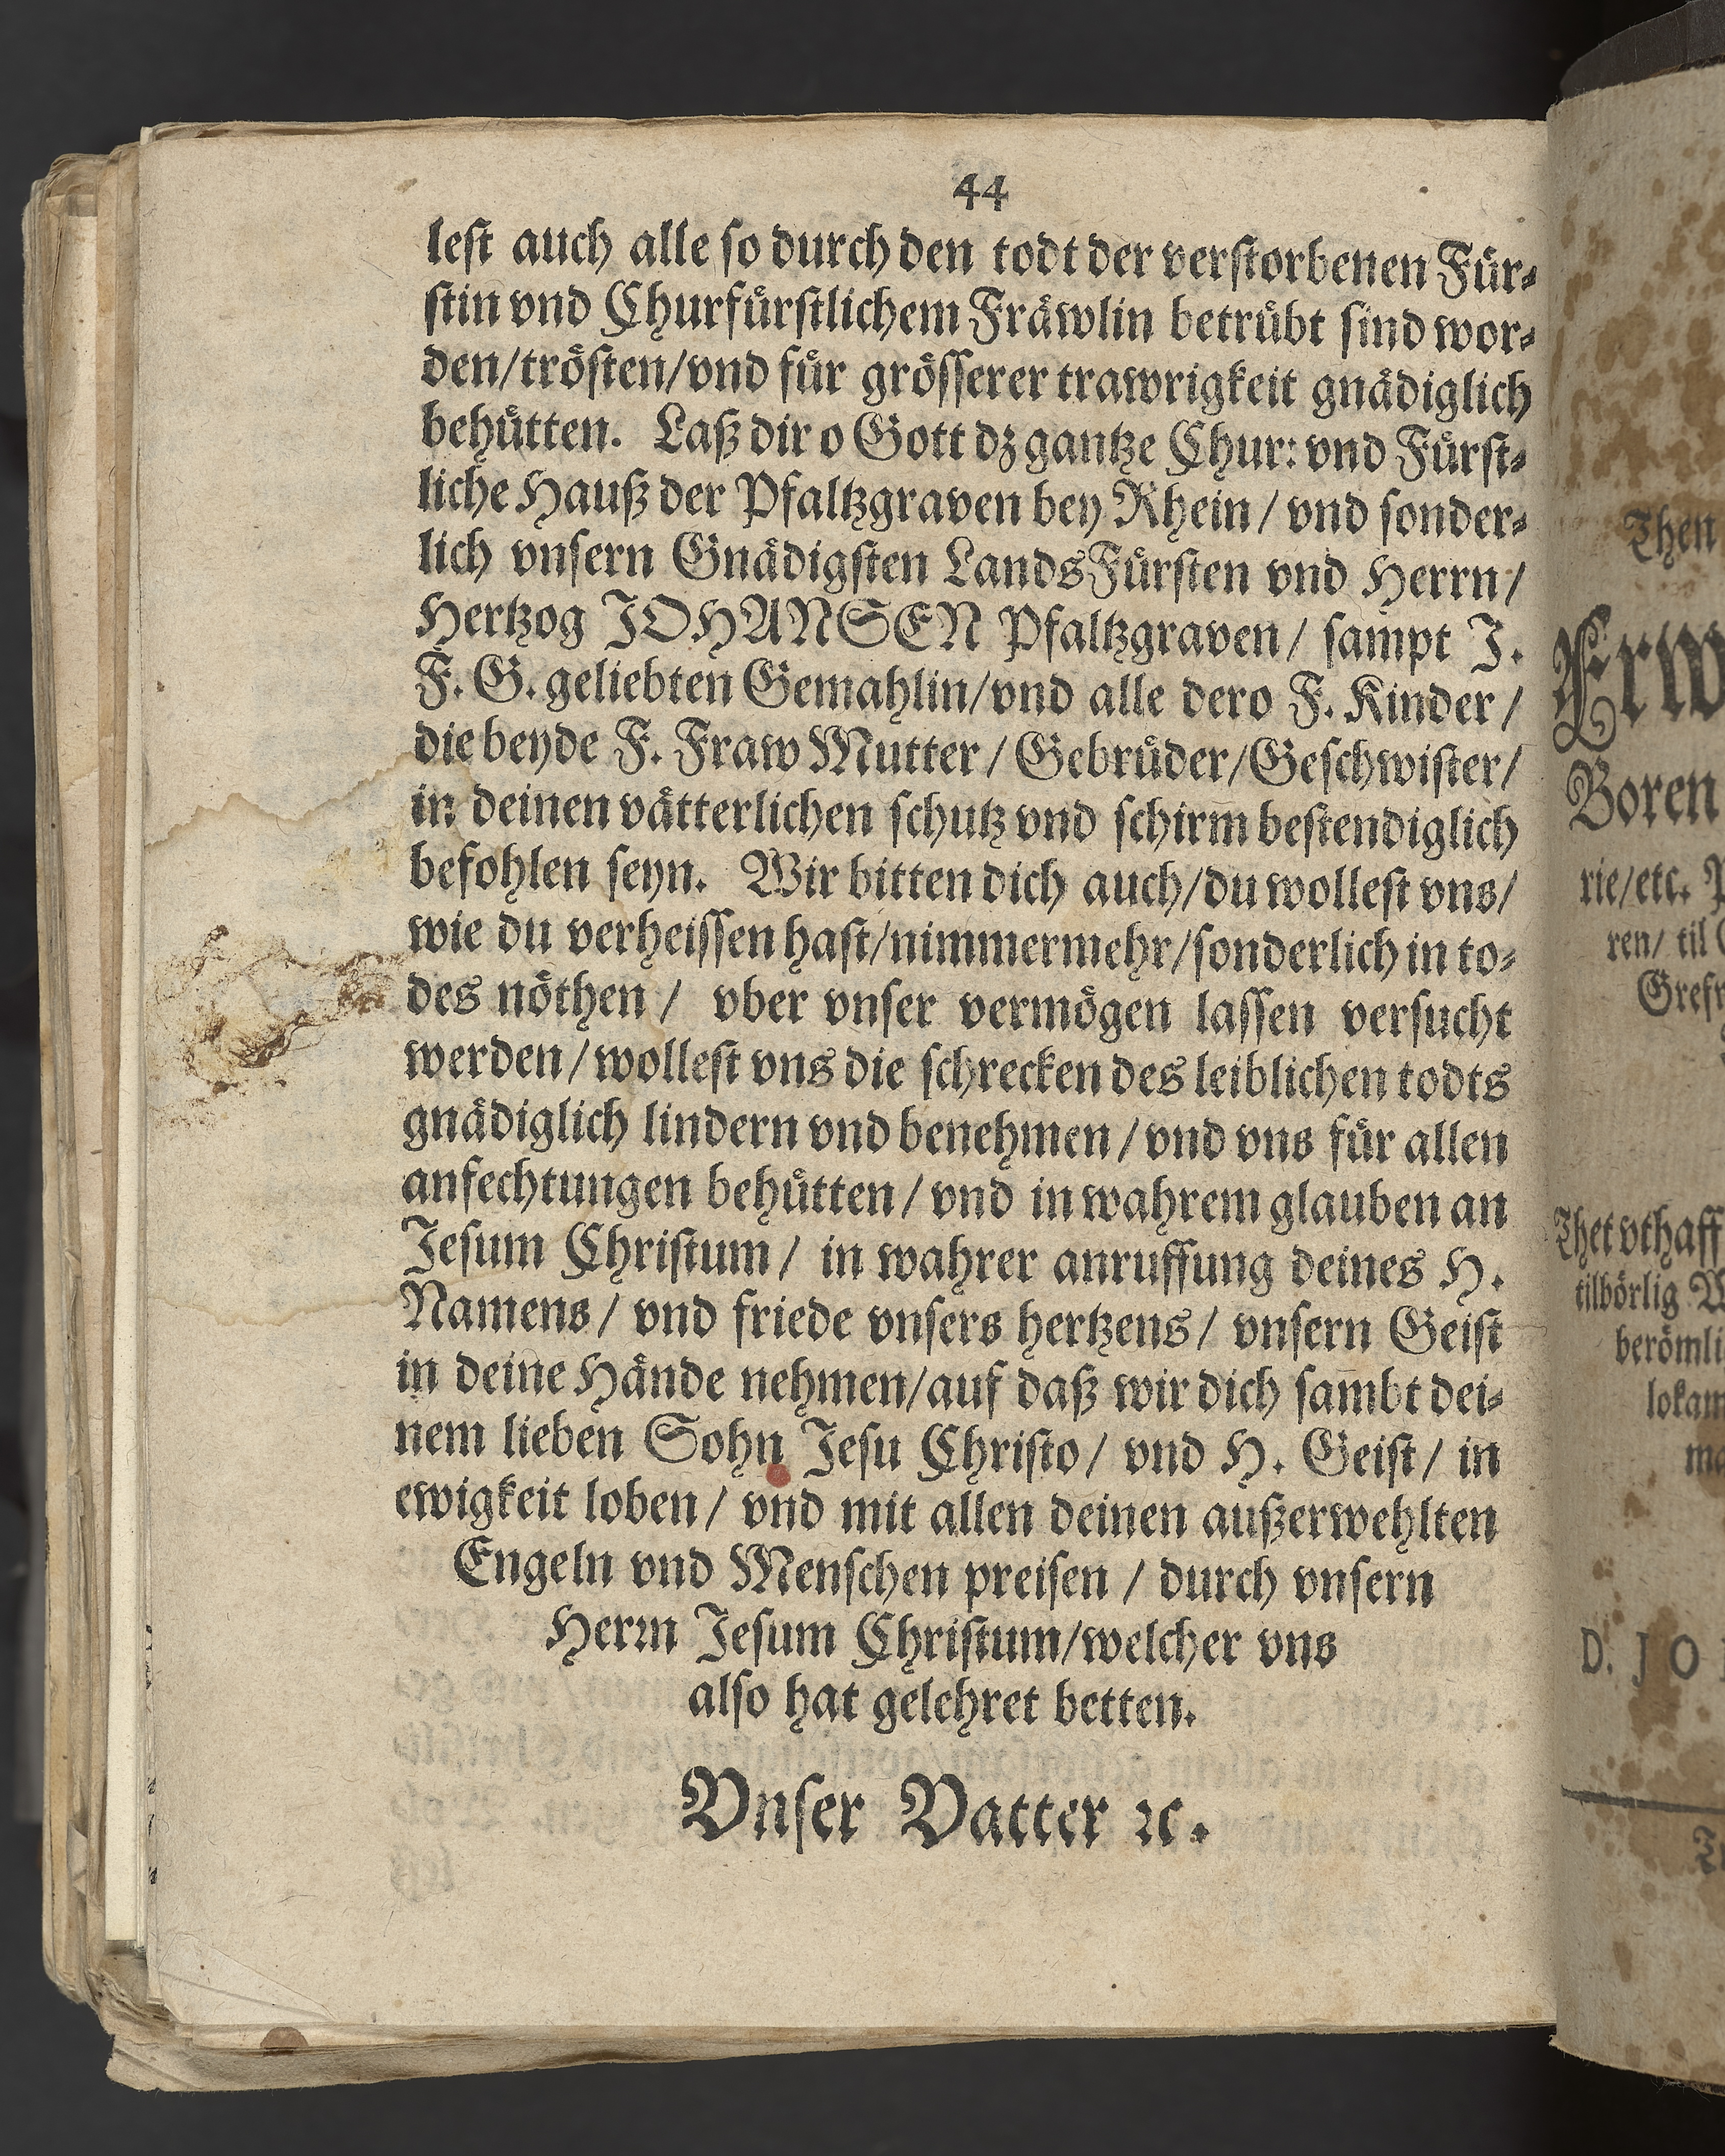 44
lest auch alle so durch den todt der verstorbenen Für-
stin vnd Churfürstlichem Fräwlin betrübt sind wor-
den/trösten/vnd für grösserer trawrigkeit gnädiglich
behütten. Laß dir o Gott dz gantze Chur: vnd Fürst-
liche Hauß der Pfaltzgraven bey Rhein/ vnd sonder-
lich vnsern Gnädigsten LandsFürsten vnd Herrn/
Hertzog JOHANSEN Pfaltzgraven/ sampt J.
F. G. geliebten Gemahlin/vnd alle dero F. Kinder/
die beyde F. Fraw Mutter/ Gebrüder/Geschwister/
in deinen vätterlichen schutz vnd schirm bestendiglich
befohlen seyn. Wir bitten dich auch/du wollest vns/
wie du verheissen hast/nimmermehr/sonderlich in to-
des nöthen/ vber vnser vermögen lassen versucht
werden/wollest vns die schrecken des leiblichen todts
gnädiglich lindern vnd benehmen/vnd vns für allen
anfechtungen behütten/ vnd in wahrem glauben an
Jesum Christum/ in wahrer anruffung deines H.
Namens/ vnd friede vnsers hertzens/ vnsern Geist
in deine Hände nehmen/auf daß wir dich sambt dei-
nem lieben Sohn Jesu Christo/ vnd H. Geist/ in
ewigkeit loben/ vnd mit allen deinen außerwehlten
Engeln vnd Menschen preisen/ durch vnsern
Herrn Jesum Christum/welcher vns
also hat gelehret betten.
Vnser Vatter ꝛc.
Then
Boren
rie/etc.
ren/ til
Thet vthaff
tilbörlig
D. JO